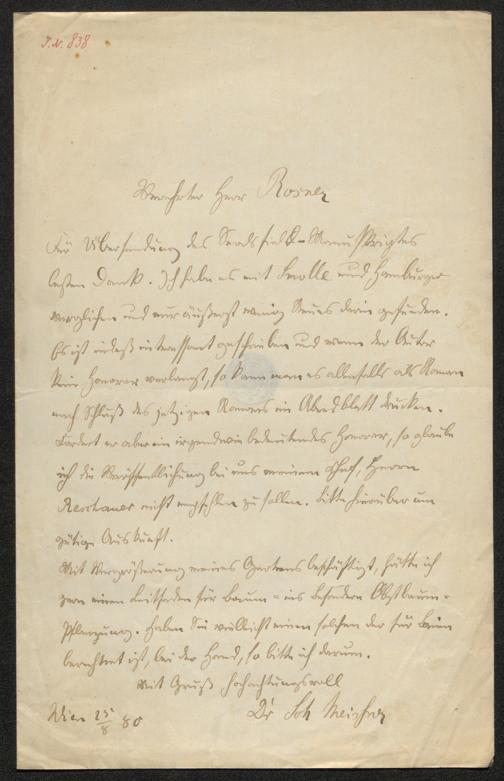 J.N. 838
Verehrter Herr Rosner
Für Übersendung des Sealsfield-Manuskriptes
besten Dank. Ich habe es mit Smolle und Hamburger
verglichen und nur äußerst wenig Neues darin gefunden.
Es ist indeß interessant geschrieben und wenn der Autor
kein Honorar verlangt, so kann man es allenfalls als Roman
nach Schluß des jetzigen Romans im Abendblatt drucken.
Fordert er aber ein irgendwie bedeutendes Honorar, so glaube
ich die Veröffentlichung bei uns meinem Chef, Herrn
Reschauer nicht empfehlen zu sollen. Bitte hierüber um
gütige Auskunft.
Mit Vergrößerung meines Gartens beschäftigt, hätte ich
gern einen Leitfaden für Baum- ins besondere Obstbaum-
Pflanzung. Haben Sie vielleicht einen solchen der für
berechnet ist, bei der Hand, so bitte ich darum.
Mit Gruß hochachtungsvoll
Wien 25/8 80
Dr Joh